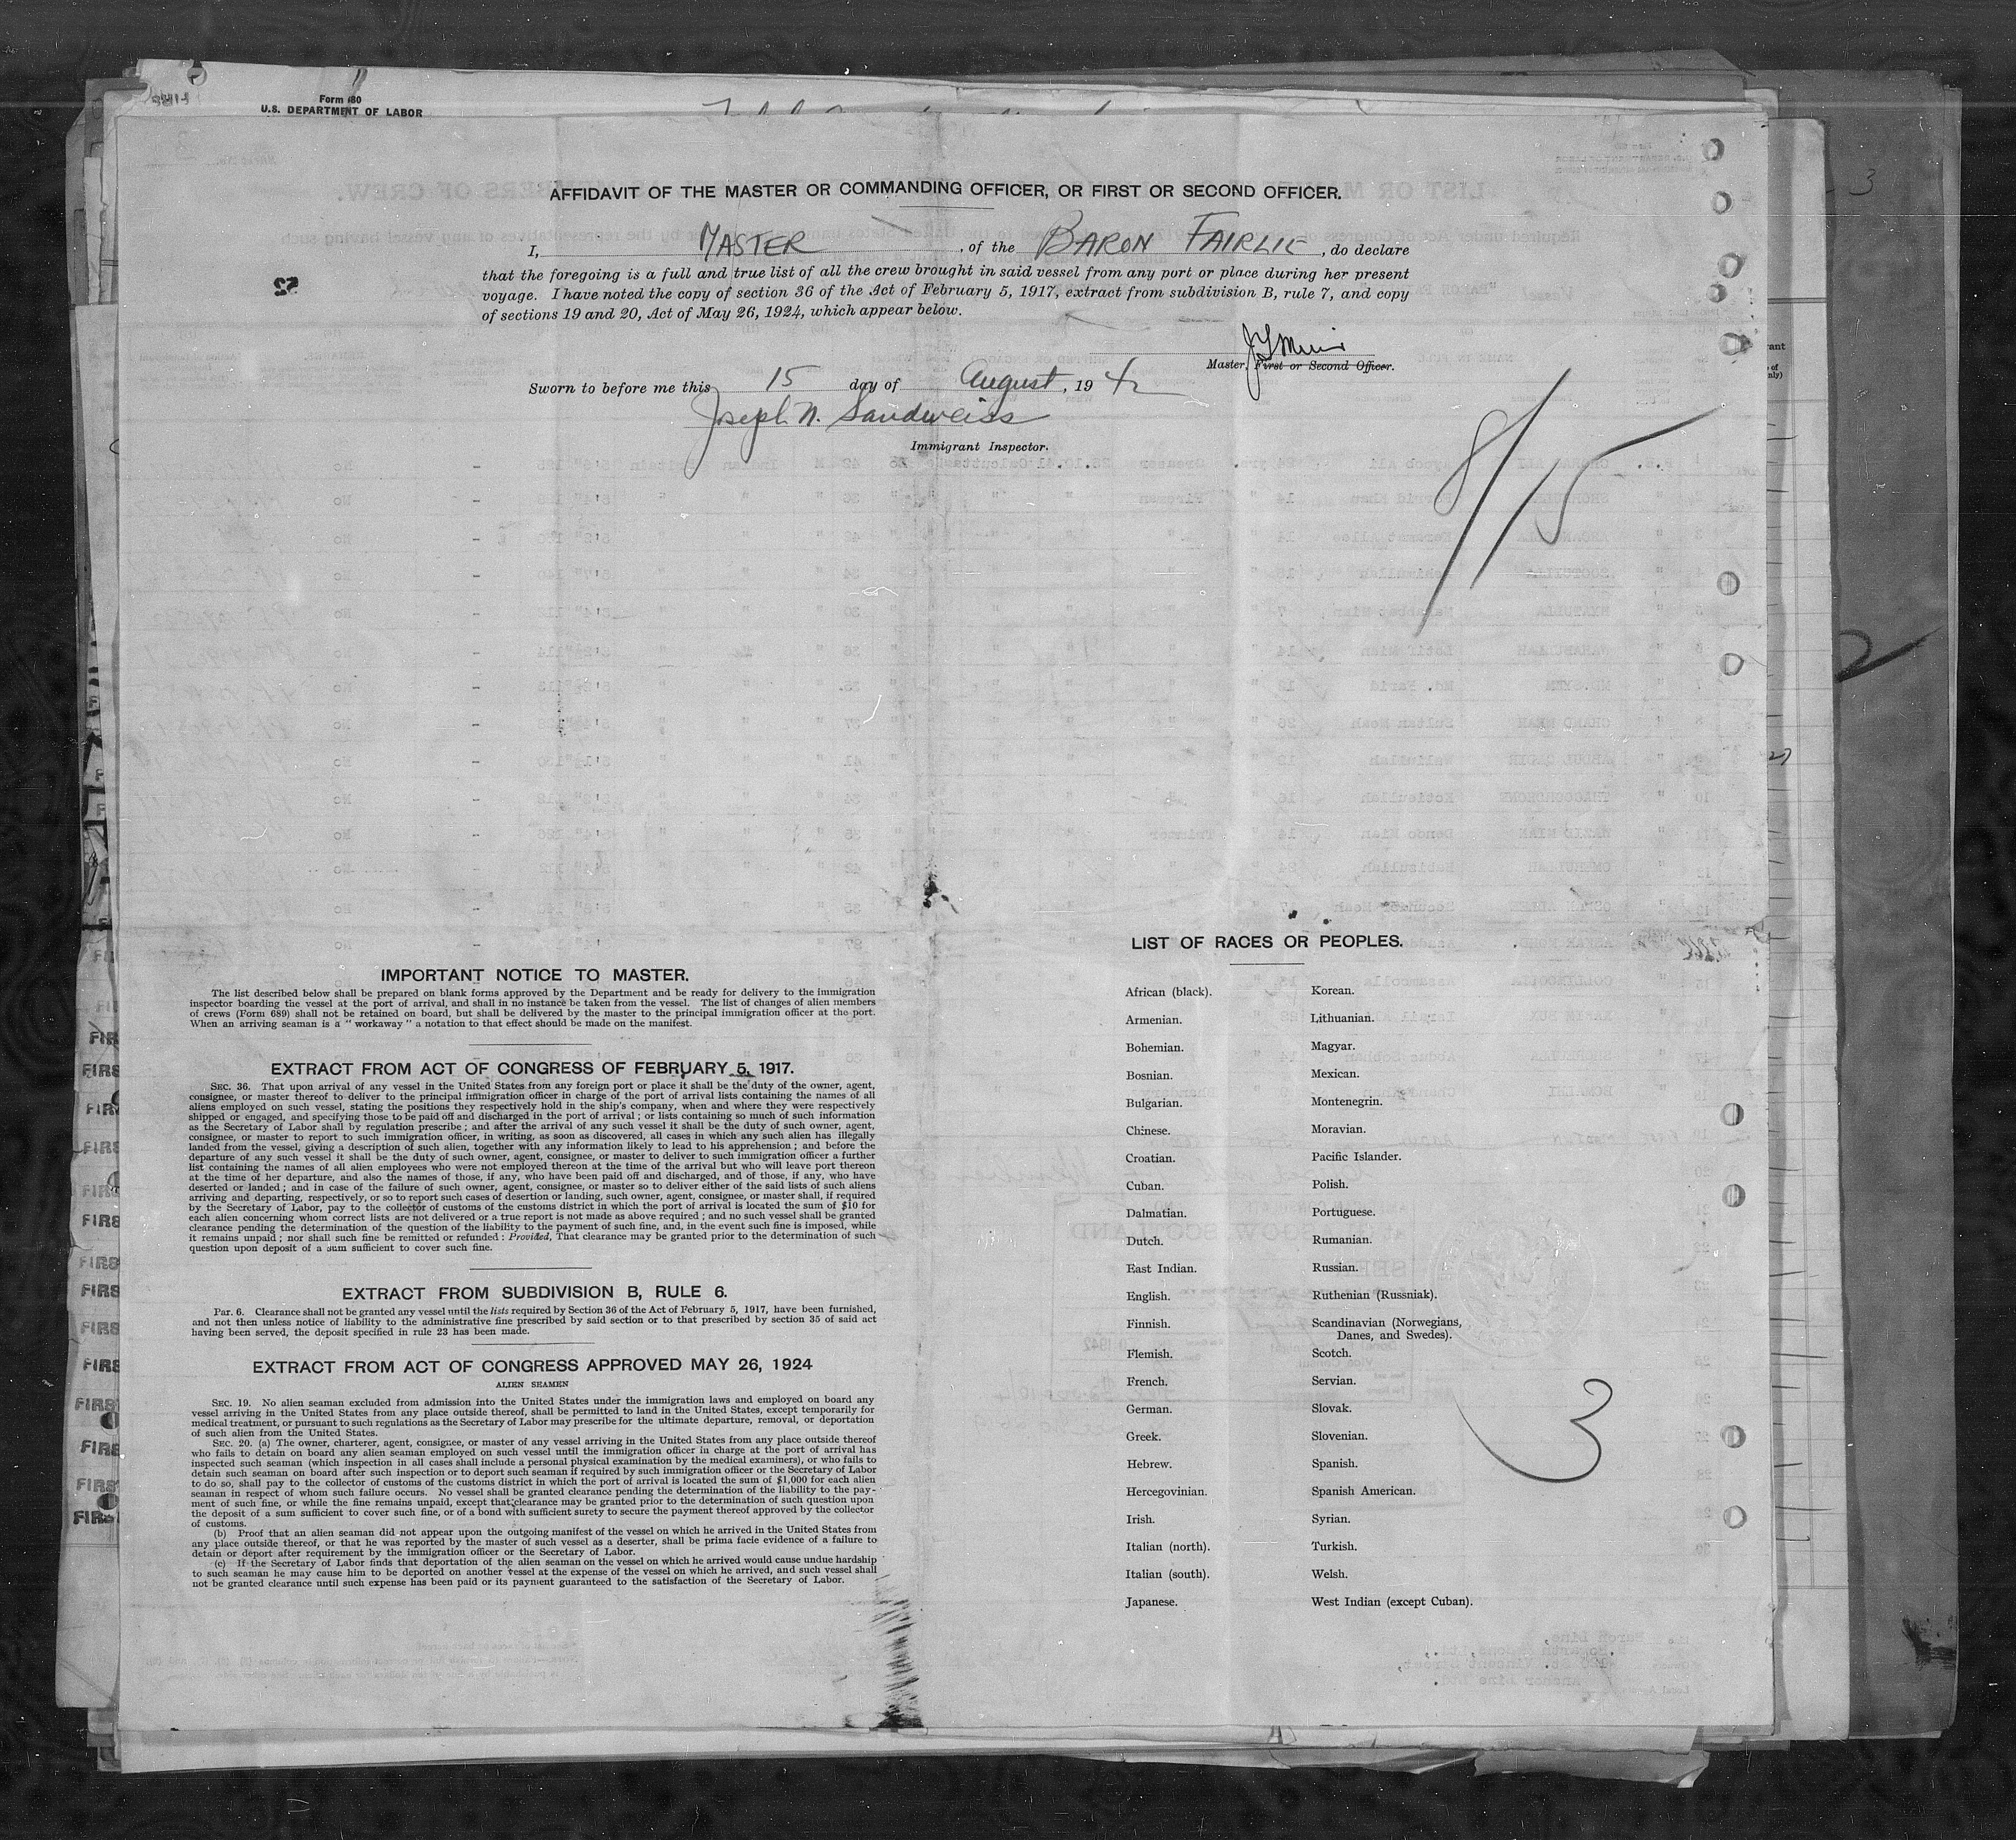 Form 680
U.S. DEPARTMENT OF LABOR
AFFIDAVIT OF THE MASTER OR COMMANDING OFFICER, OR FIRST OR SECOND OFFICER.
I, MASTER, of the BARON FAIRLIE, do declare
that the foregoing is a full and true list of all the crew brought in said vessel from any port or place during her present
voyage. I have noted the copy of section 36 of the Act of February 5, 1917, extract from subdivision B, rule 7, and copy
of sections 19 and 20, Act of May 26, 1924, which appear below.
52
Master, First or Second Officer.
Sworn to before me this 15 day of August, 1942
Joseph N. Sandweiss
Immigrant Inspector.
8/15
IMPORTANT NOTICE TO MASTER.
The list described below shall be prepared on blank forms approved by the Department and be ready for delivery to the immigration
inspector boarding the vessel at the port of arrival, and shall in no instance be taken from the vessel. The list of changes of alien members
of crews (Form 689) shall not be retained on board, but shall be delivered by the master to the principal immigration officer at the port.
When an arriving seaman is a "workaway" a notation to that effect should be made on the manifest.
EXTRACT FROM ACT OF CONGRESS OF FEBRUARY 5, 1917.
SEC. 36. That upon arrival of any vessel in the United States from any foreign port or place it shall be the duty of the owner, agent,
consignee, or master thereof to deliver to the principal immigration officer in charge of the port of arrival lists containing the names of all
aliens employed on such vessel, stating the positions they respectively hold in the ship's company, when and where they were respectively
shipped or engaged, and specifying those to be paid off and discharged in the port of arrival; or lists containing so much of such information
as the Secretary of Labor shall by regulation prescribe; and after the arrival of any such vessel it shall be the duty of such owner, agent,
consignee, or master to report to such immigration officer, in writing, as soon as discovered, all cases in which any such alien has illegally
landed from the vessel, giving a description of such alien, together with any information likely to lead to his apprehension; and before the
departure of any such vessel it shall be the duty of such owner, agent, consignee, or master to deliver to such immigration officer a further
list containing the names of all alien employees who were not employed thereon at the time of the arrival but who will leave port thereon
at the time of her departure, and also the names of those, if any, who have been paid off and discharged, and of those, if any, who have
deserted or landed; and in case of the failure of such owner, agent, consignee, or master so to deliver either of the said lists of such aliens
arriving and departing, respectively, or so to report such cases of desertion or landing, such owner, agent, consignee, or master shall, if required
by the Secretary of Labor, pay to the collector of customs of the customs district in which the port of arrival is located the sum of $10 for
each alien concerning whom correct lists are not delivered or a true report is not made as above required; and no such vessel shall be granted
clearance pending the determination of the question of the liability to the payment of such fine, and, in the event such fine is imposed, while
it remains unpaid; nor shall such fine be remitted or refunded: Provided, That clearance may be granted prior to the determination of such
question upon deposit of a sum sufficient to cover such fine.
EXTRACT FROM SUBDIVISION B, RULE 6.
Par. 6. Clearance shall not be granted any vessel until the lists required by Section 36 of the Act of February 5, 1917, have been furnished,
and not then unless notice of liability to the administrative fine prescribed by said section or to that prescribed by section 35 of said act
having been served, the deposit specified in rule 23 has been made.
EXTRACT FROM ACT OF CONGRESS APPROVED MAY 26, 1924
ALIEN SEAMEN
SEC. 19. No alien seaman excluded from admission into the United States under the immigration laws and employed on board any
vessel arriving in the United States from any place outside thereof, shall be permitted to land in the United States, except temporarily for
medical treatment, or pursuant to such regulations as the Secretary of Labor may prescribe for the ultimate departure, removal, or deportation
of such alien from the United States.
SEC. 20. (a) The owner, charterer, agent, consignee, or master of any vessel arriving in the United States from any place outside thereof
who fails to detain on board any alien seaman employed on such vessel until the immigration officer in charge at the port of arrival has
inspected such seaman (which inspection in all cases shall include a personal physical examination by the medical examiners), or who fails to
detain such seaman on board after such inspection or to deport such seaman if required by such immigration officer or the Secretary of Labor
to do so, shall pay to the collector of customs of the customs district in which the port of arrival is located the sum of $1,000 for each alien
seaman in respect of whom such failure occurs. No vessel shall be granted clearance pending the determination of the liability to the pay-
ment of such fine, or while the fine remains unpaid, except that clearance may be granted prior to the determination of such question upon
the deposit of a sum sufficient to cover such fine, or of a bond with sufficient surety to secure the payment thereof approved by the collector
of customs.
(b) Proof that an alien seaman did not appear upon the outgoing manifest of the vessel on which he arrived in the United States from
any place outside thereof, or that he was reported by the master of such vessel as a deserter, shall be prima facie evidence of a failure to
detain or deport after requirement by the immigration officer or the Secretary of Labor.
(c) If the Secretary of Labor finds that deportation of the alien seaman on the vessel on which he arrived would cause undue hardship
to such seaman he may cause him to be deported on another vessel at the expense of the vessel on which he arrived, and such vessel shall
not be granted clearance until such expense has been paid or its payment guaranteed to the satisfaction of the Secretary of Labor.
LIST OF RACES OR PEOPLES.
African (black).
Armenian.
Bohemian.
Bosnian.
Bulgarian.
Chinese.
Croatian.
Cuban.
Dalmatian.
Dutch.
East Indian.
English.
Finnish.
Flemish.
French.
German.
Greek.
Hebrew.
Hercegovinian.
Irish.
Italian (north).
Italian (south).
Japanese.
Korean.
Lithuanian.
Magyar.
Mexican.
Montenegrin.
Moravian.
Pacific Islander.
Polish.
Portuguese.
Rumanian.
Russian.
Ruthenian (Russniak).
Scandinavian (Norwegians,
Danes, and Swedes).
Scotch.
Servian.
Slovak.
Slovenian.
Spanish.
Spanish American.
Syrian.
Turkish.
Welsh.
West Indian (except Cuban).
3
2
3